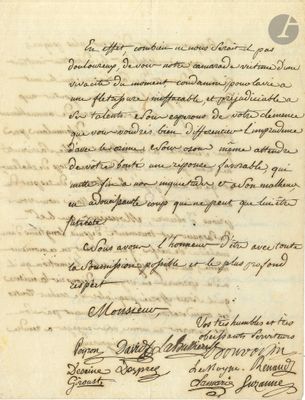 En effet combien ne nous seroit il pas
douloureux, de voir notre camarade victime d'une
vivacité du moment condamné pour la vie a
une fletrissure ineffacable et prejudiciable a
ses talents. Nous esperons de votre clemence
que vous voudrés bien differencier l'imprudence
davec le crime, Nous osons même attendre
de votre bonté une reponse favorable, qui
mette fin a nos inquietudes et a son malheur
en adoucissant le coup que ne peut que lui être
Nous avons l'honneur d'être avec toute
la Soumission possible et le plus profond
respect
Monsieur
Vos très humbles et très
obéissants serviteurs
Peyron David
Lemoyne Renaud
Desprez
Giroust Lamarie Suzanne